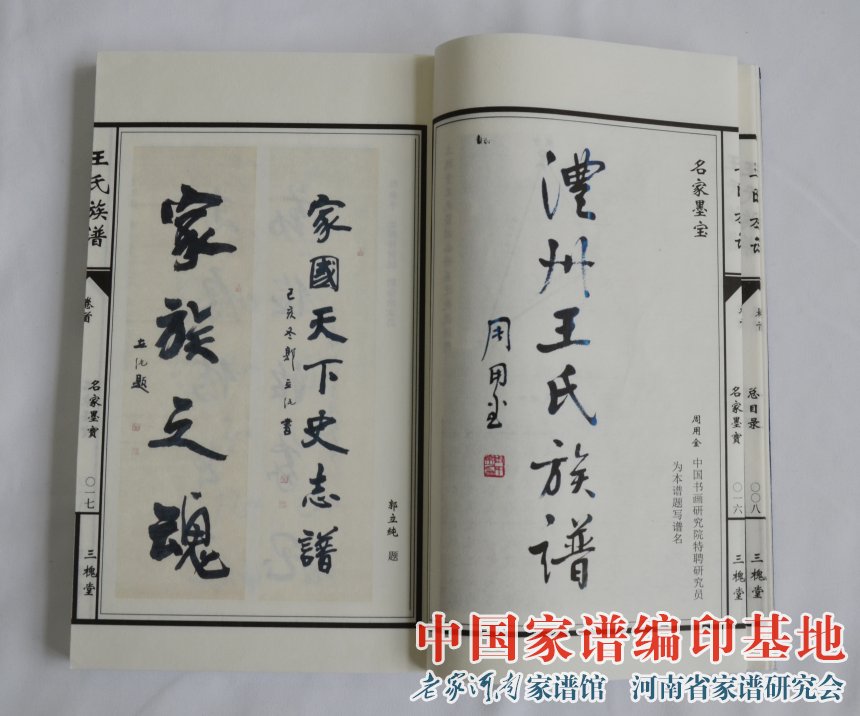 总目录
〇〇八
三槐堂
名家墨宝
〇一六
三槐堂
名家墨宝
澧州王氏族谱
周用金
周用金 中国书画研究院特聘研究员
为本谱题写谱名
郭立纯 题
家國天下史志譜
己亥冬郭立纯書
家族之魂
立纯题
王氏族谱
卷首
名家墨宝
〇一七
三槐堂
中国家谱编印基地
老家河南家谱馆 河南省家谱研究会